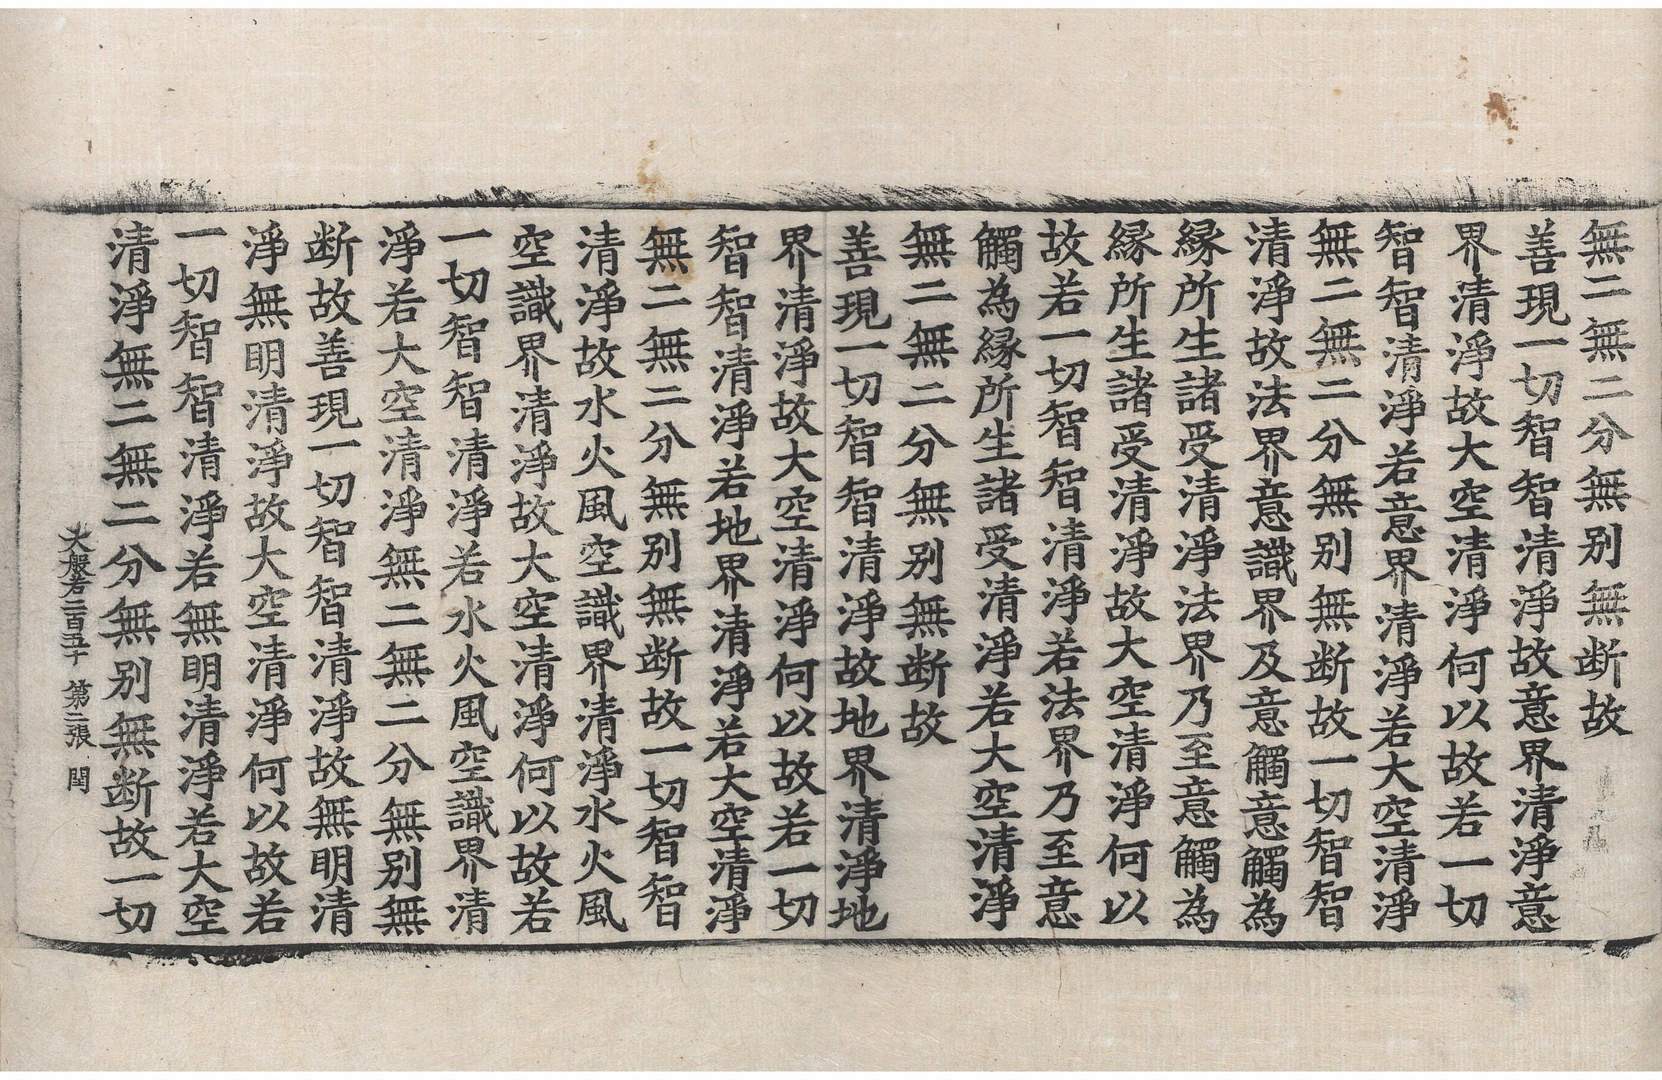 無二無二分無別無断故
善現一切智智清淨故意界清淨意
界清淨故大空清淨何以故若一切
智智清淨若意界清淨若大空清淨
無二無二分無別無断故一切智智
清淨故法界意識界及意觸意觸為
縁所生諸受清淨法界乃至意觸為
縁所生諸受清淨故大空清淨何以
故若一切智智清淨若法界乃至意
觸為縁所生諸受清淨若大空清淨
無二無二分無別無断故
善現一切智智清淨故地界清淨地
界清淨故大空清淨何以故若一切
智智清淨若地界清淨若大空清淨
無二無二分無別無断故一切智智
清淨故水火風空識界清淨水火風
空識界清淨故大空清淨何以故若
一切智智清淨若水火風空識界清
淨若大空清淨無二無二分無別無
断故善現一切智智清淨故無明清
淨無明清淨故大空清淨何以故若
一切智智清淨若無明清淨若大空
清淨無二無二分無別無断故一切
大般若二百五十 第二張 閏